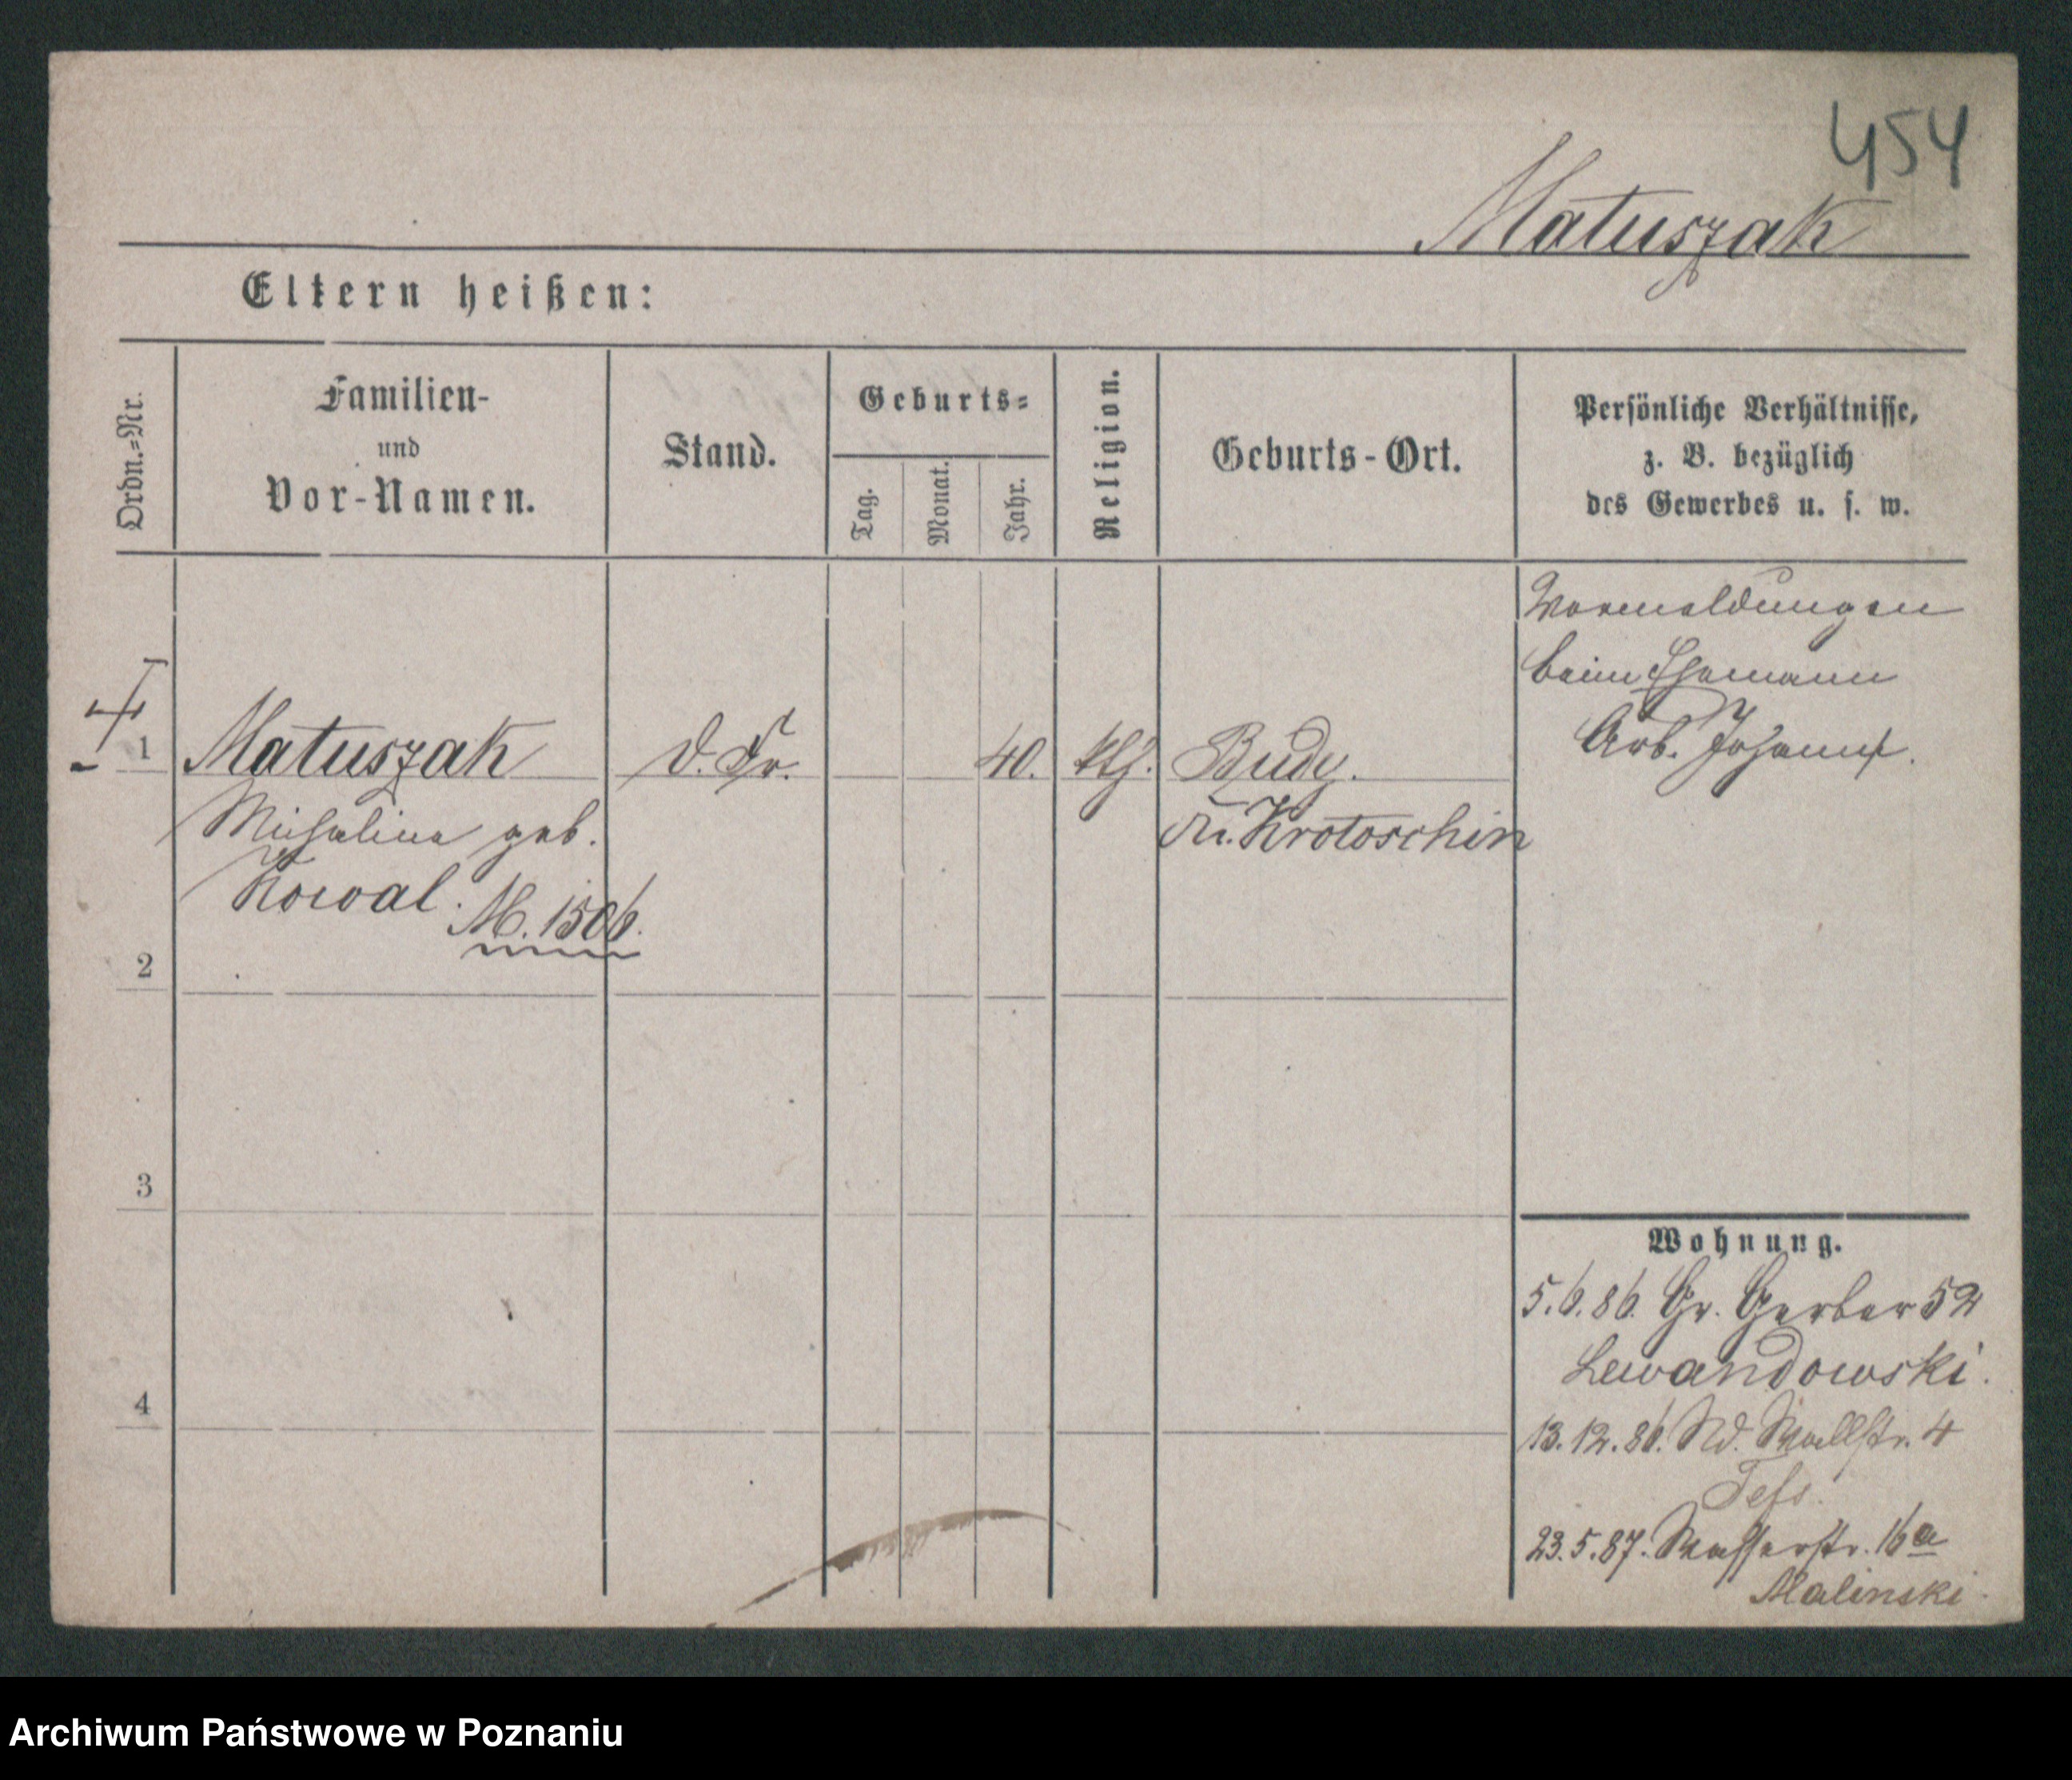 454
Matuszak
Eltern heißen:
Ordn.=Nr.
Familien-
und
Vor-Namen.
Stand.
Geburts=
Tag.
Monat.
Jahr.
Religion.
Geburts-Ort.
Persönliche Verhältnisse,
z. B. bezüglich
des Gewerbes u. s. w.
Vormeldungen
beim Ehemann
Arb. Johann
1 Matuszak 40. kth. Budy.
Michalina geb. Kr. Krotoschin
Kowal. M. 1506.
2
3
4
Wohnung.
5.6.86. Gr. Gerber 52
Lewandowski.
13.12.86. Nd. Wallstr. 4
23.5.87. Wasserstr. 16a
Malinski.
Archiwum Państwowe w Poznaniu